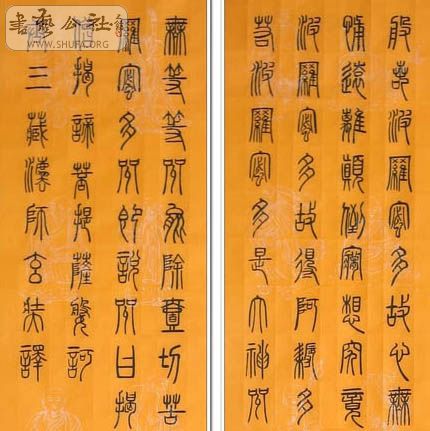 書藝公社
WWW.SHUFA.ORG
般若波羅蜜多故心無
怖遠離顛倒夢想究竟
波羅蜜多故得阿耨多
若波羅蜜多是大神咒
無等等咒能除壹切苦
羅蜜多咒即說咒曰揭
僧揭諦菩提薩婆訶
唐三藏法師玄奘譯